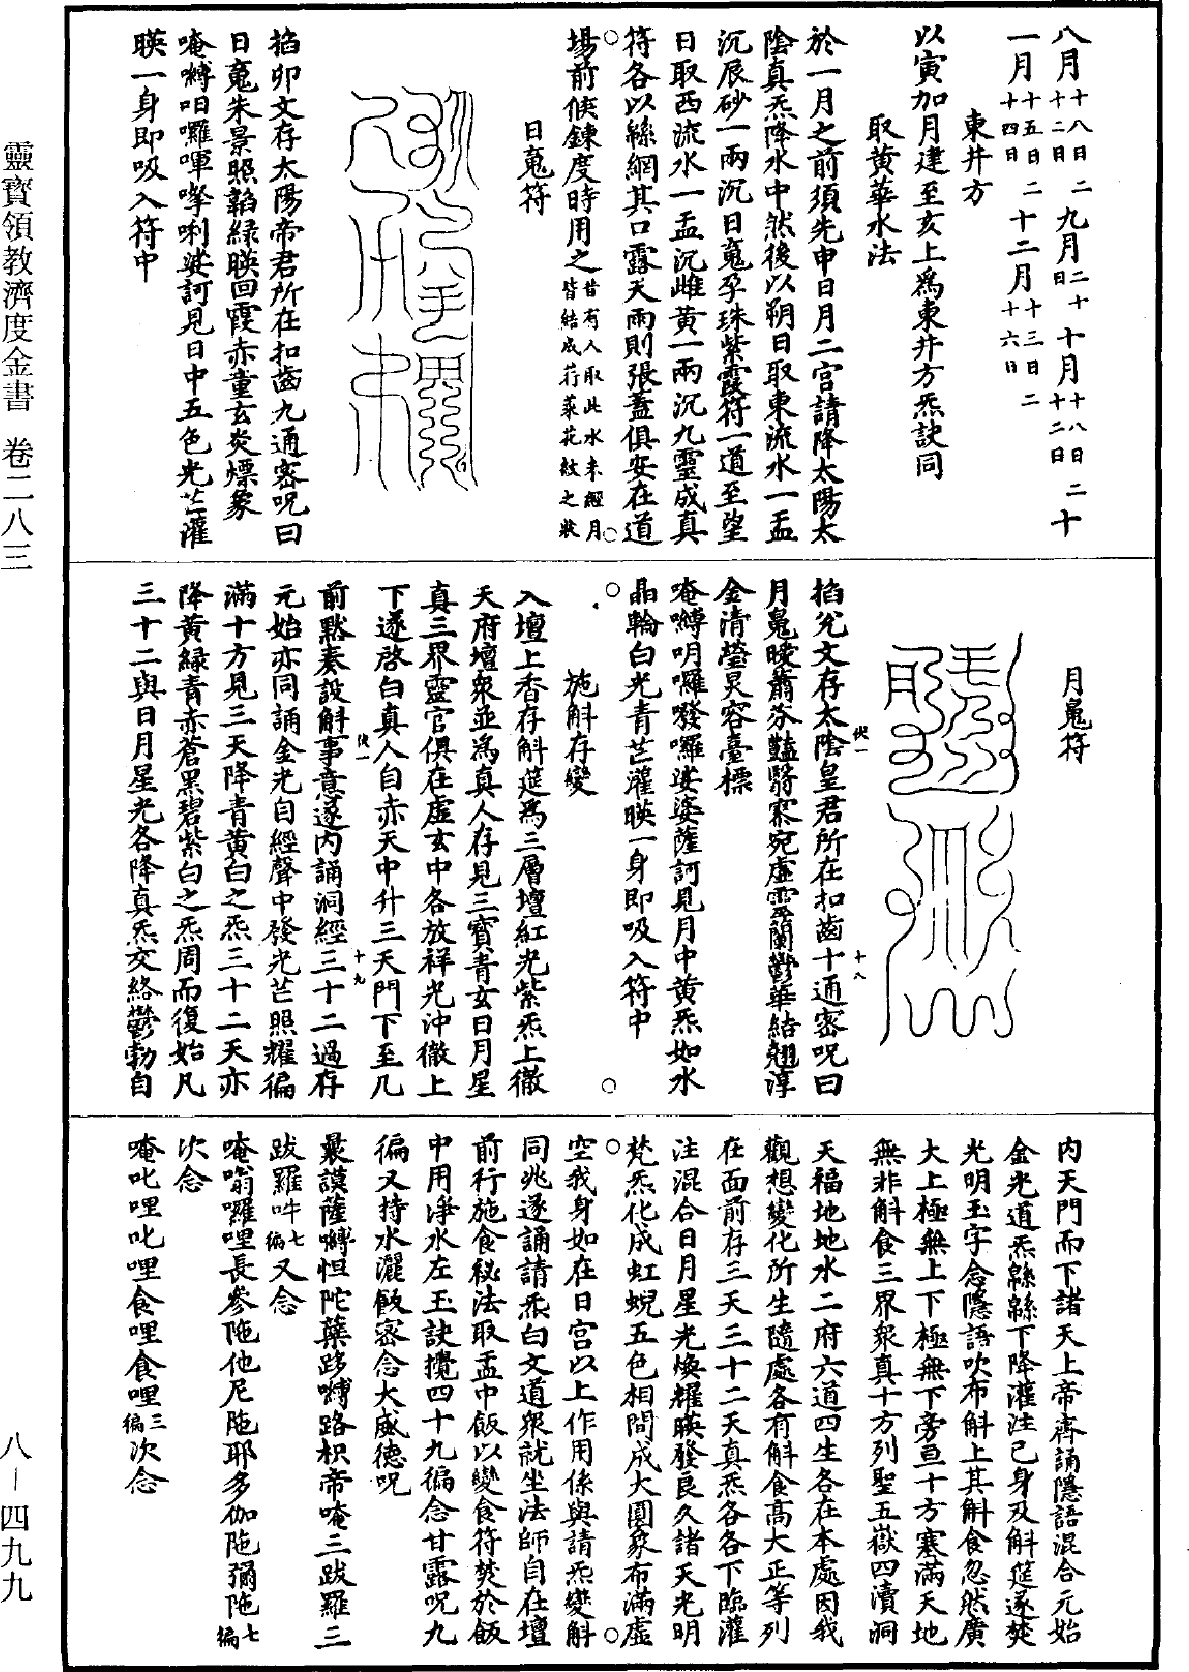 八月十八日二十二日九月二十日十月十八日二十二日十
一月十五日二十四日十二月十三日二十六日
東井方
以寅加月建至亥上為東井方炁訣同
取黃華水法
於一月之前須先申日月二宮請降太陽太
陰真炁降水中然後以朔日取東流水一盂
沉辰砂一兩沉日䰟孕珠紫霞符一道至望
日取西流水一盂沉雌黃一兩沉九靈成真
符各以絲網其口露天雨則張蓋俱安在道
場前候鍊度時用之昔有人取此水未經月皆結成荇菜花紋之狀
日䰟符
掐卯文存太陽帝君所在扣齒九通密呪曰
日䰟朱景照韜綠暎回霞赤童玄炎熛象
唵嚩呬囉嗶嚟唎娑訶見日中五色光芒灌
暎一身即吸入符中
月䰟符
掐兊文存太陰皇君所在扣齒十通密呪曰
月䰟曖蕭芬豔翳寥宛虛靈蘭鬱華結翹淳
金清瑩炅容臺標
唵嚩明囉囉娑婆薩訶見月中黃炁如水
晶輪白光青芒灌暎一身即吸入符中
施斛存變
入壇上香存斛筵為三層壇紅光紫炁上徹
天府壇衆並為真人存見三寶青玄日月星
真三界靈官俱在虛玄中各放祥光沖徹上
下遂啓白真人自赤天中升三天門下至几
前黙奏設斛事意遂內誦洞經三十二過存
元始亦同誦金光自經聲中發光芒照耀徧
滿十方見三天降青黃白之炁三十二天亦
降黃綠青赤蒼黑碧紫白之炁周而復始凡
三十二與日月星光各降真炁交絡鬱勃自
內天門而下諸天上帝齊誦隱語混合元始
金光道炁緜緜下降灌注已身及斛筵遂焚
光明玉字念隱語吹布斛上其斛食忽然廣
大上極無上下極無下旁亘十方塞滿天地
無非斛食三界衆真十方列聖五嶽四瀆洞
天福地地水二府六道四生各在本處因我
觀想變化所生隨處各有斛食高大正等列
在面前存三天三十二天真炁各各下臨灌
注混合日月星光煥耀暎發良久諸天光明
梵炁化成虹蜺五色相間成大圓象布滿虛
空我身如在日宮以上作用係與請炁變斛
同兆遂誦請炁白文道衆就坐法師自在壇
前行施食秘法取盂中飯以變食符焚於飯
中用淨水左玉訣攪四十九徧念甘露呪九
徧又持水灑飯密念大威德呪
曩謨薩嚩怛陀蘖路嚩路枳帝唵三跋羅三
跋羅吽七徧又念
唵嗡囉哩長參陁他尼陁耶多伽陁彌陁七徧
次念
唵叱哩叱哩食哩食哩三徧次念
靈寶領教濟度金書 卷二八三
八－四九九